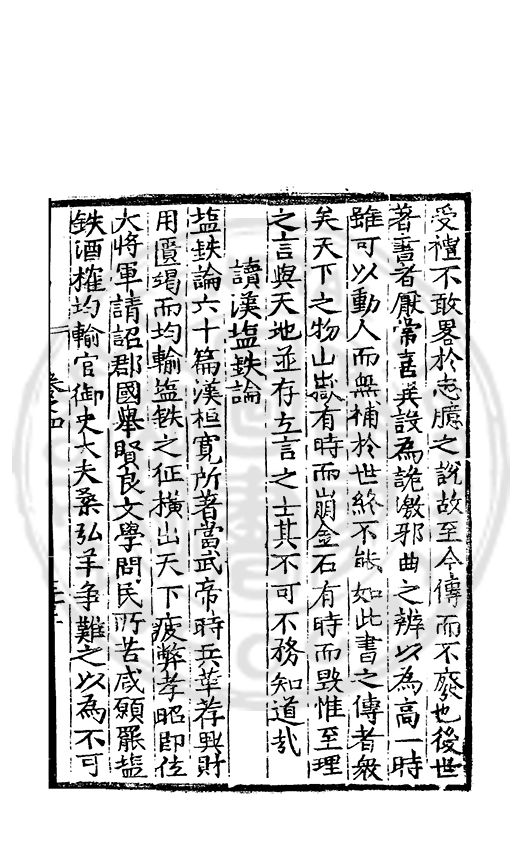 受禮不敢畧於志臆之說故至今傳而不廢也後世
著書者厭常喜異設為詭激邪曲之辨以為高一時
雖可以動人而無補於世終不能如此書之傳者衆
矣天下之物山嶽有時而崩金石有時而毀惟至理
之言與天地並存立言之士其不可不務知道哉
讀漢塩鉄論
塩鉄論六十篇漢桓寛所著當武帝時兵革荐興財
用匱竭而均輸塩鉄之征橫出天下疲弊孝昭即位
大將軍請詔郡國舉賢良文學問民所苦咸願罷塩
鉄酒榷均輸官御史大夫桑弘羊争難之以為不可
卷之四